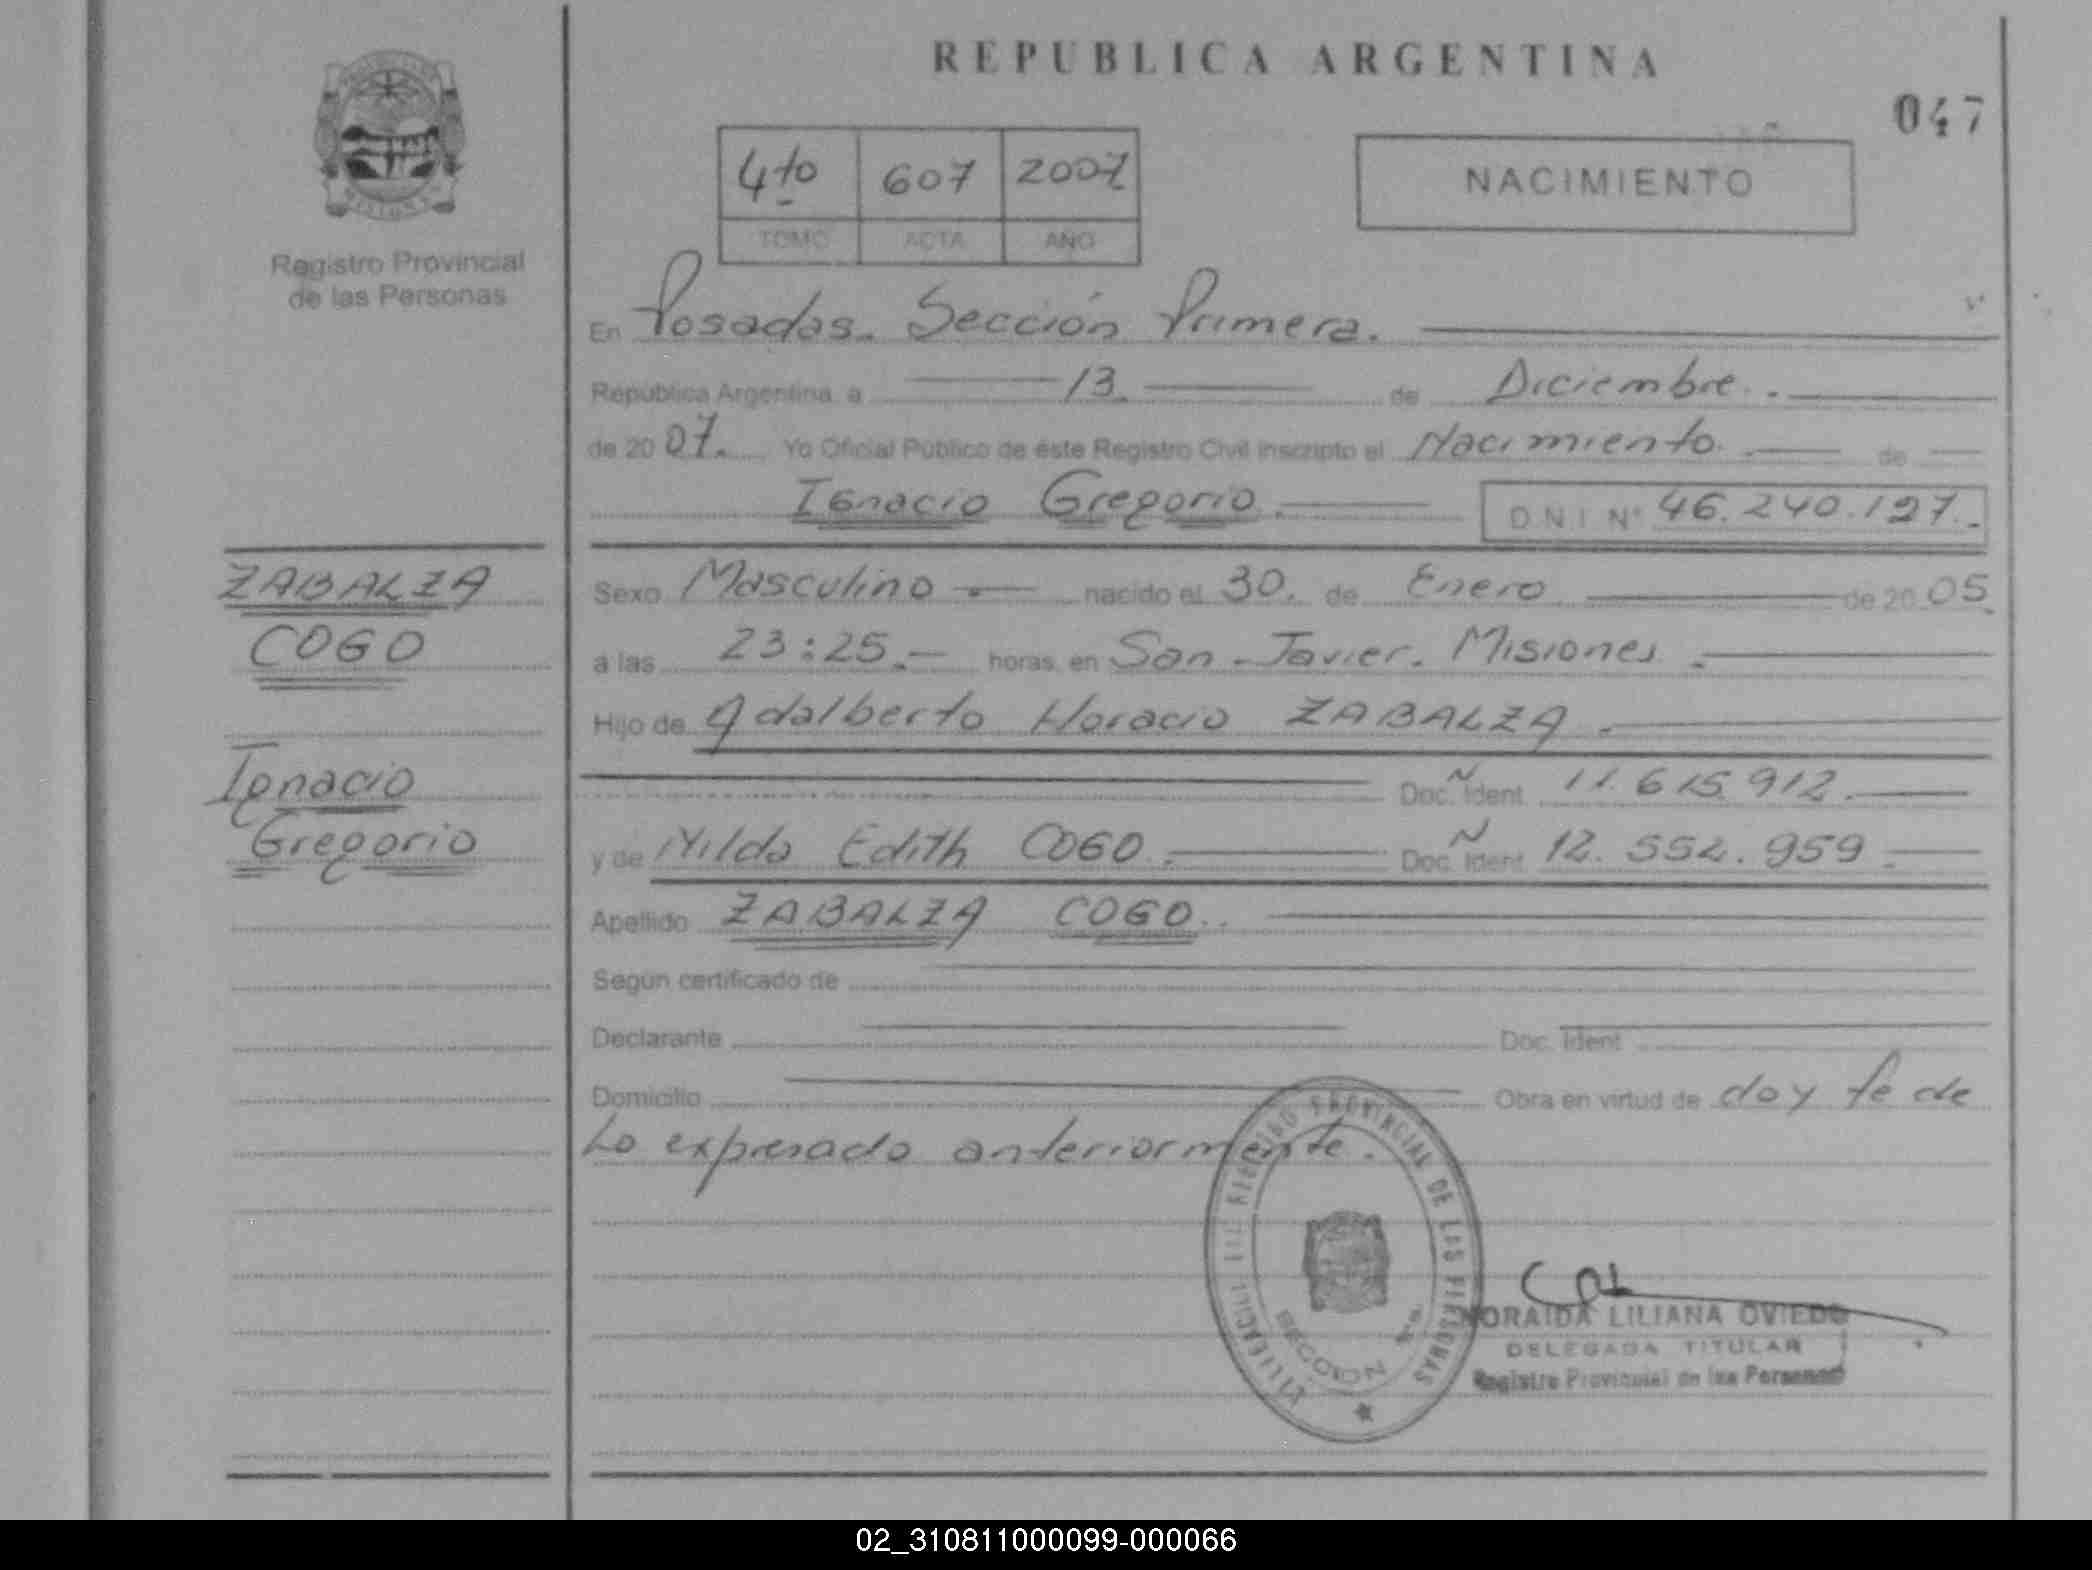 REPUBLICA ARGENTINA
047
4to 607 2007
TOMO ACTA AÑO
NACIMIENTO
Registro Provincial
de las Personas
En Posadas. Sección Primera.
República Argentina a 13. de Diciembre.
de 20 07. Yo Oficial Público de éste Registro Civil inscripto el Nacimiento. de
Ignacio Gregorio. D N I N° 46.240.127.
ZABALZA
COGO
Ignacio
Gregorio
Sexo Masculino nacido el 30. de Enero de 20 05.
a las 23:25. horas, en San Javier. Misiones.
Hijo de Adalberto Horacio ZABALZA.
Doc. Ident. 11.615.912.
y de Nilda Edith COGO. Doc. Ident. 12.552.959.
Apellido ZABALZA COGO.
Según certificado de
Declarante Doc. Ident.
Domicilio Obra en virtud de doy fe de
Lo expresado anteriormente.
REGISTRO PROVINCIAL DE LAS PERSONAS
SECCION
NORAIDA LILIANA OVIEDO
DELEGADA TITULAR
Registro Provincial de las Personas
02_310811000099-000066